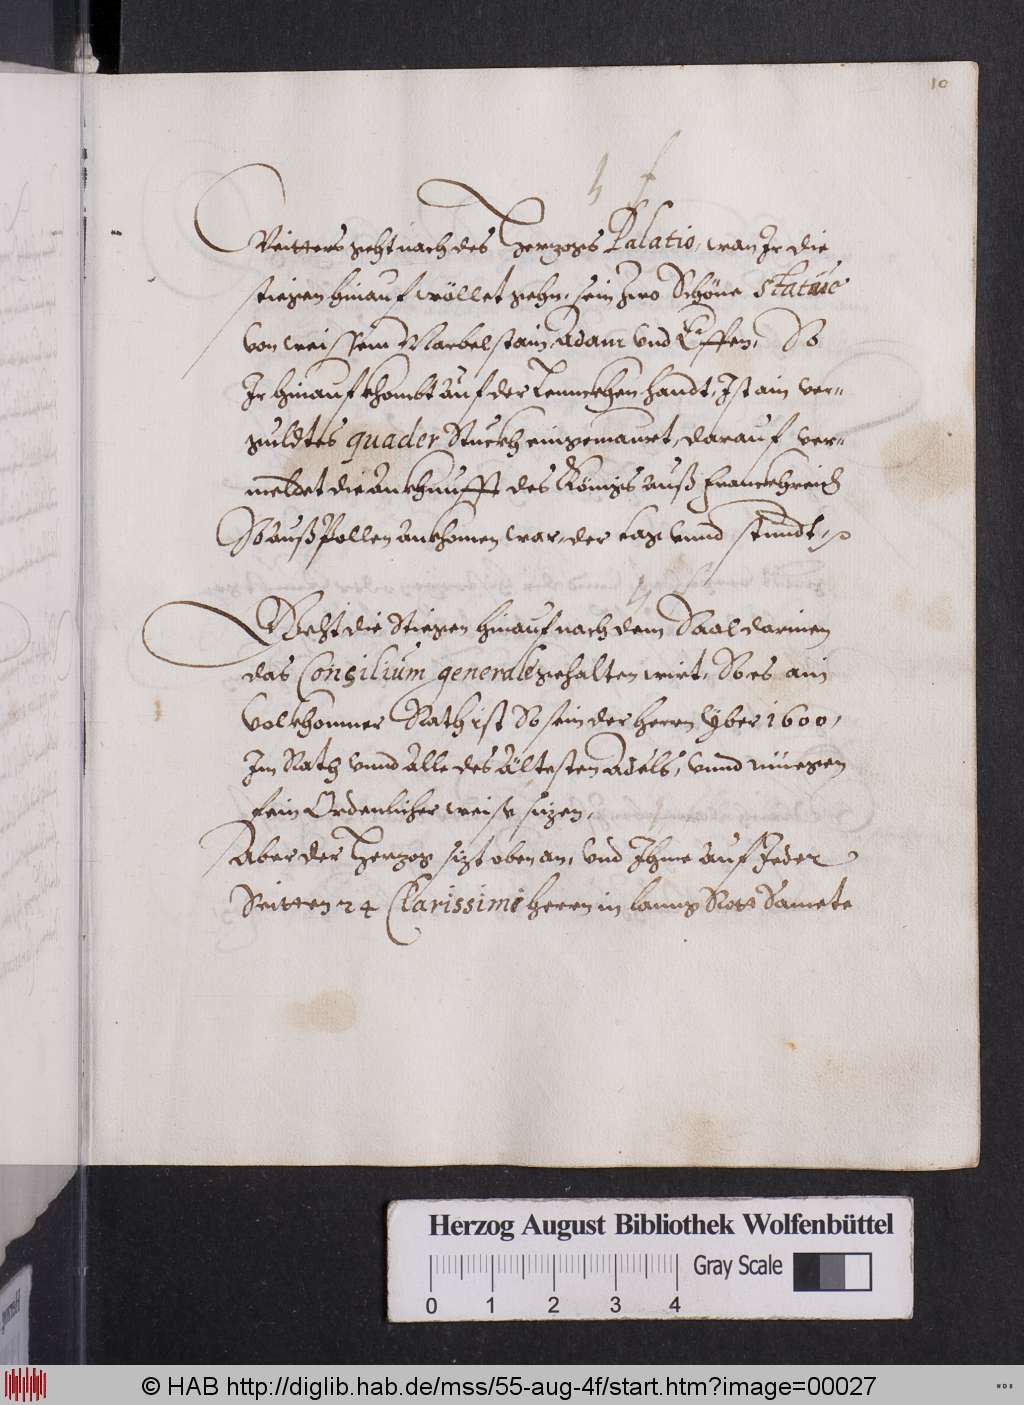 10
Weitters geht nach des Hertzogs Palatio, wan Ir die
stiegen hinauf wöllet gehn, sein zwo Schöne statuie
von weissem Marbelstain, Adam vnd Eiffen, So
Ir hinauf khombt auf der Lennckhen handt, Ist ain ver=
guldtes quader Stuckh eingemaurt, darauf ver=
meldet die Ankhunfft des Königs auß Franckhreich
So auß Pollen ankhomen war, der tag vnnd stundt,
Geht die Stiegen hinauf nach dem Saal darinen
das Consilium generale gehalten wirt, So es ain
volkhomner Rath ist So sein der herrn yber 1600,
Im Rath vnnd alle des ältesten Adels, vnnd müegen
fein Ordenlicher weiß sizen,
Aber der Herzog sizt oben an, vnd Ihme auf Jeder
Seitten 24 Clarissimi herrn in lanng Rott Samete
Herzog August Bibliothek Wolfenbüttel
Gray Scale
0 1 2 3 4
© HAB http://diglib.hab.de/mss/55-aug-4f/start.htm?image=00027